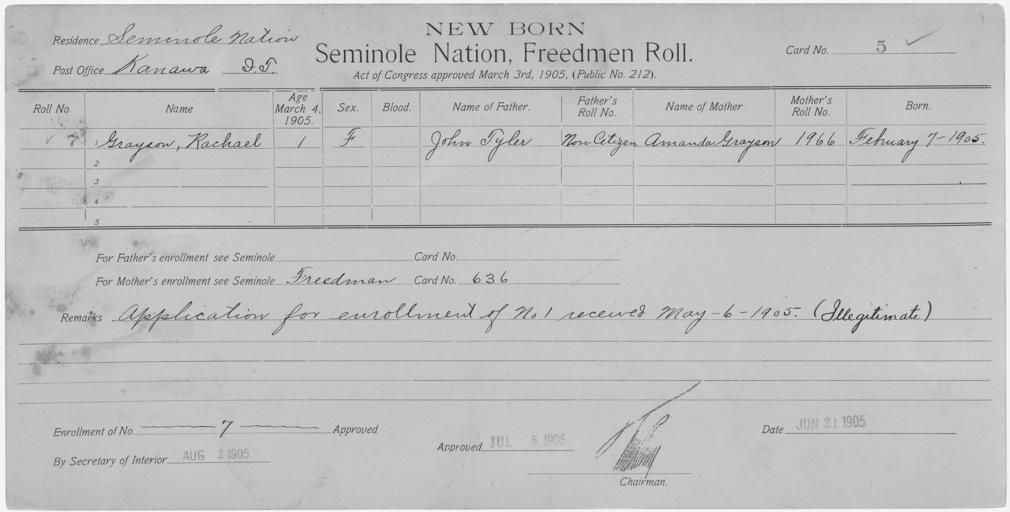 NEW BORN
Residence Seminole Nation
Seminole Nation, Freedmen Roll.
Card No. 5
Post Office Kanawa I.T.
Act of Congress approved March 3rd, 1905, (Public No. 212).
Roll No Name Age March 4, 1905. Sex. Blood. Name of Father. Father's Roll No. Name of Mother Mother's Roll No. Born.
7 1 Grayson, Rachael 1 F John Tyler Non Citizen Amanda Grayson 1966 February 7-1905.
2
3
4
5
For Father's enrollment see Seminole Card No.
For Mother's enrollment see Seminole Freedman Card No. 636
Remarks Application for enrollment of No 1 received May-6-1905. (Illegitimate)
Enrollment of No. 7 Approved
Approved JUL 5 1905
Date JUN 21 1905
By Secretary of Interior AUG 2 1905
Chairman.